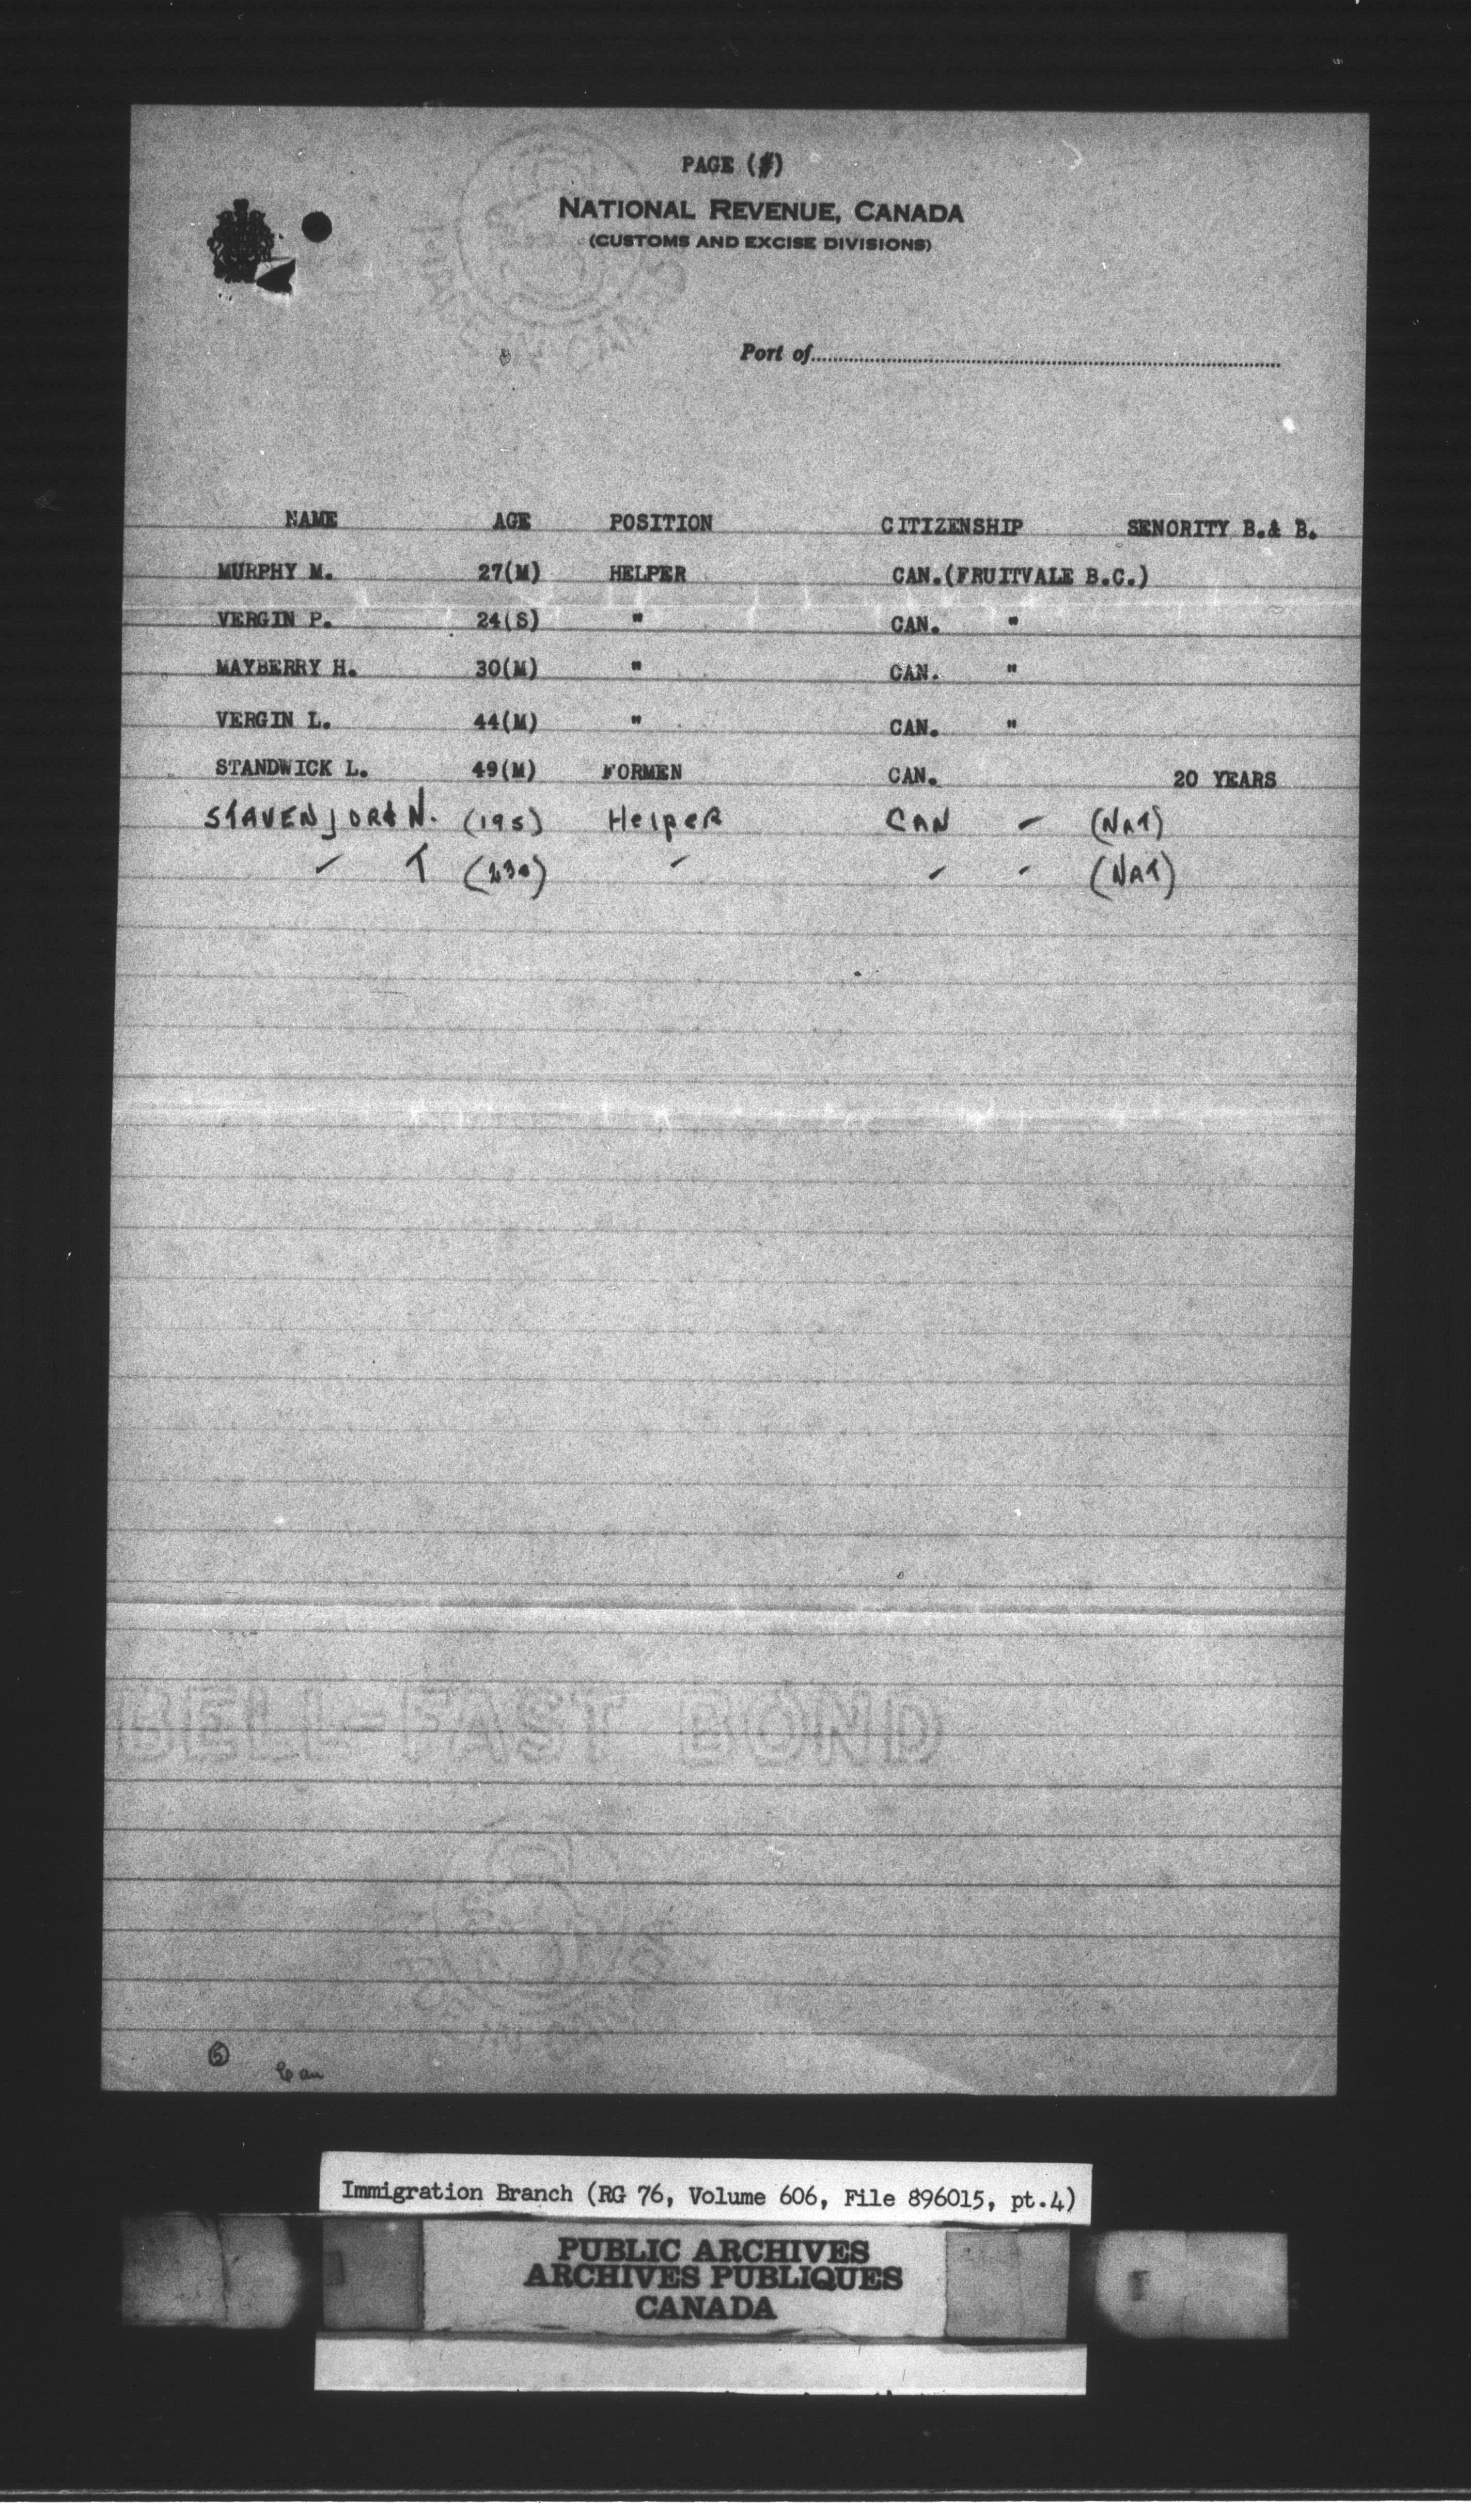 PAGE (#)
NATIONAL REVENUE, CANADA
(CUSTOMS AND EXCISE DIVISIONS)
Port of
NAME AGE POSITION CITIZENSHIP SENORITY B.& B.
MURPHY M. 27(M) HELPER CAN.(FRUITVALE B.C.)
VERGIN P. 24(S) " CAN. "
MAYBERRY H. 30(M) " CAN. "
VERGIN L. 44(M) " CAN. "
STANDWICK L. 49(M) FORMEN CAN. 20 YEARS
STAVENJORD N. (19s) Helper CAN " (NAT)
" T " " " (NAT)
BELL-FAST BOND
5
Immigration Branch (RG 76, Volume 606, File 896015, pt.4)
PUBLIC ARCHIVES
ARCHIVES PUBLIQUES
CANADA